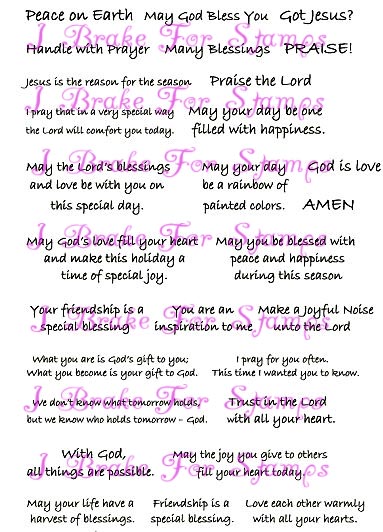 Peace on Earth May God Bless You Got Jesus?
Handle with Prayer Many Blessings PRAISE!
I Brake For Stamps
Jesus is the reason for the season Praise the Lord
I Brake For Stamps
I pray that in a very special way
the Lord will comfort you today.
May your day be one
filled with happiness.
I Brake For Stamps
May the Lord's blessings
and love be with you on
this special day.
May your day
be a rainbow of
painted colors.
God is love
AMEN
I Brake For Stamps
May God's love fill your heart
and make this holiday a
time of special joy.
May you be blessed with
peace and happiness
during this season
I Brake For Stamps
Your friendship is a
special blessing
You are an
inspiration to me
Make a Joyful Noise
unto the Lord
I Brake For Stamps
What you are is God's gift to you;
What you become is your gift to God.
I pray for you often.
This time I wanted you to know.
I Brake For Stamps
We don't know what tomorrow holds,
but we know who holds tomorrow - God.
Trust in the Lord
with all your heart.
I Brake For Stamps
With God,
all things are possible.
May the joy you give to others
fill your heart today.
May your life have a
harvest of blessings.
Friendship is a
special blessing.
Love each other warmly
with all your hearts.